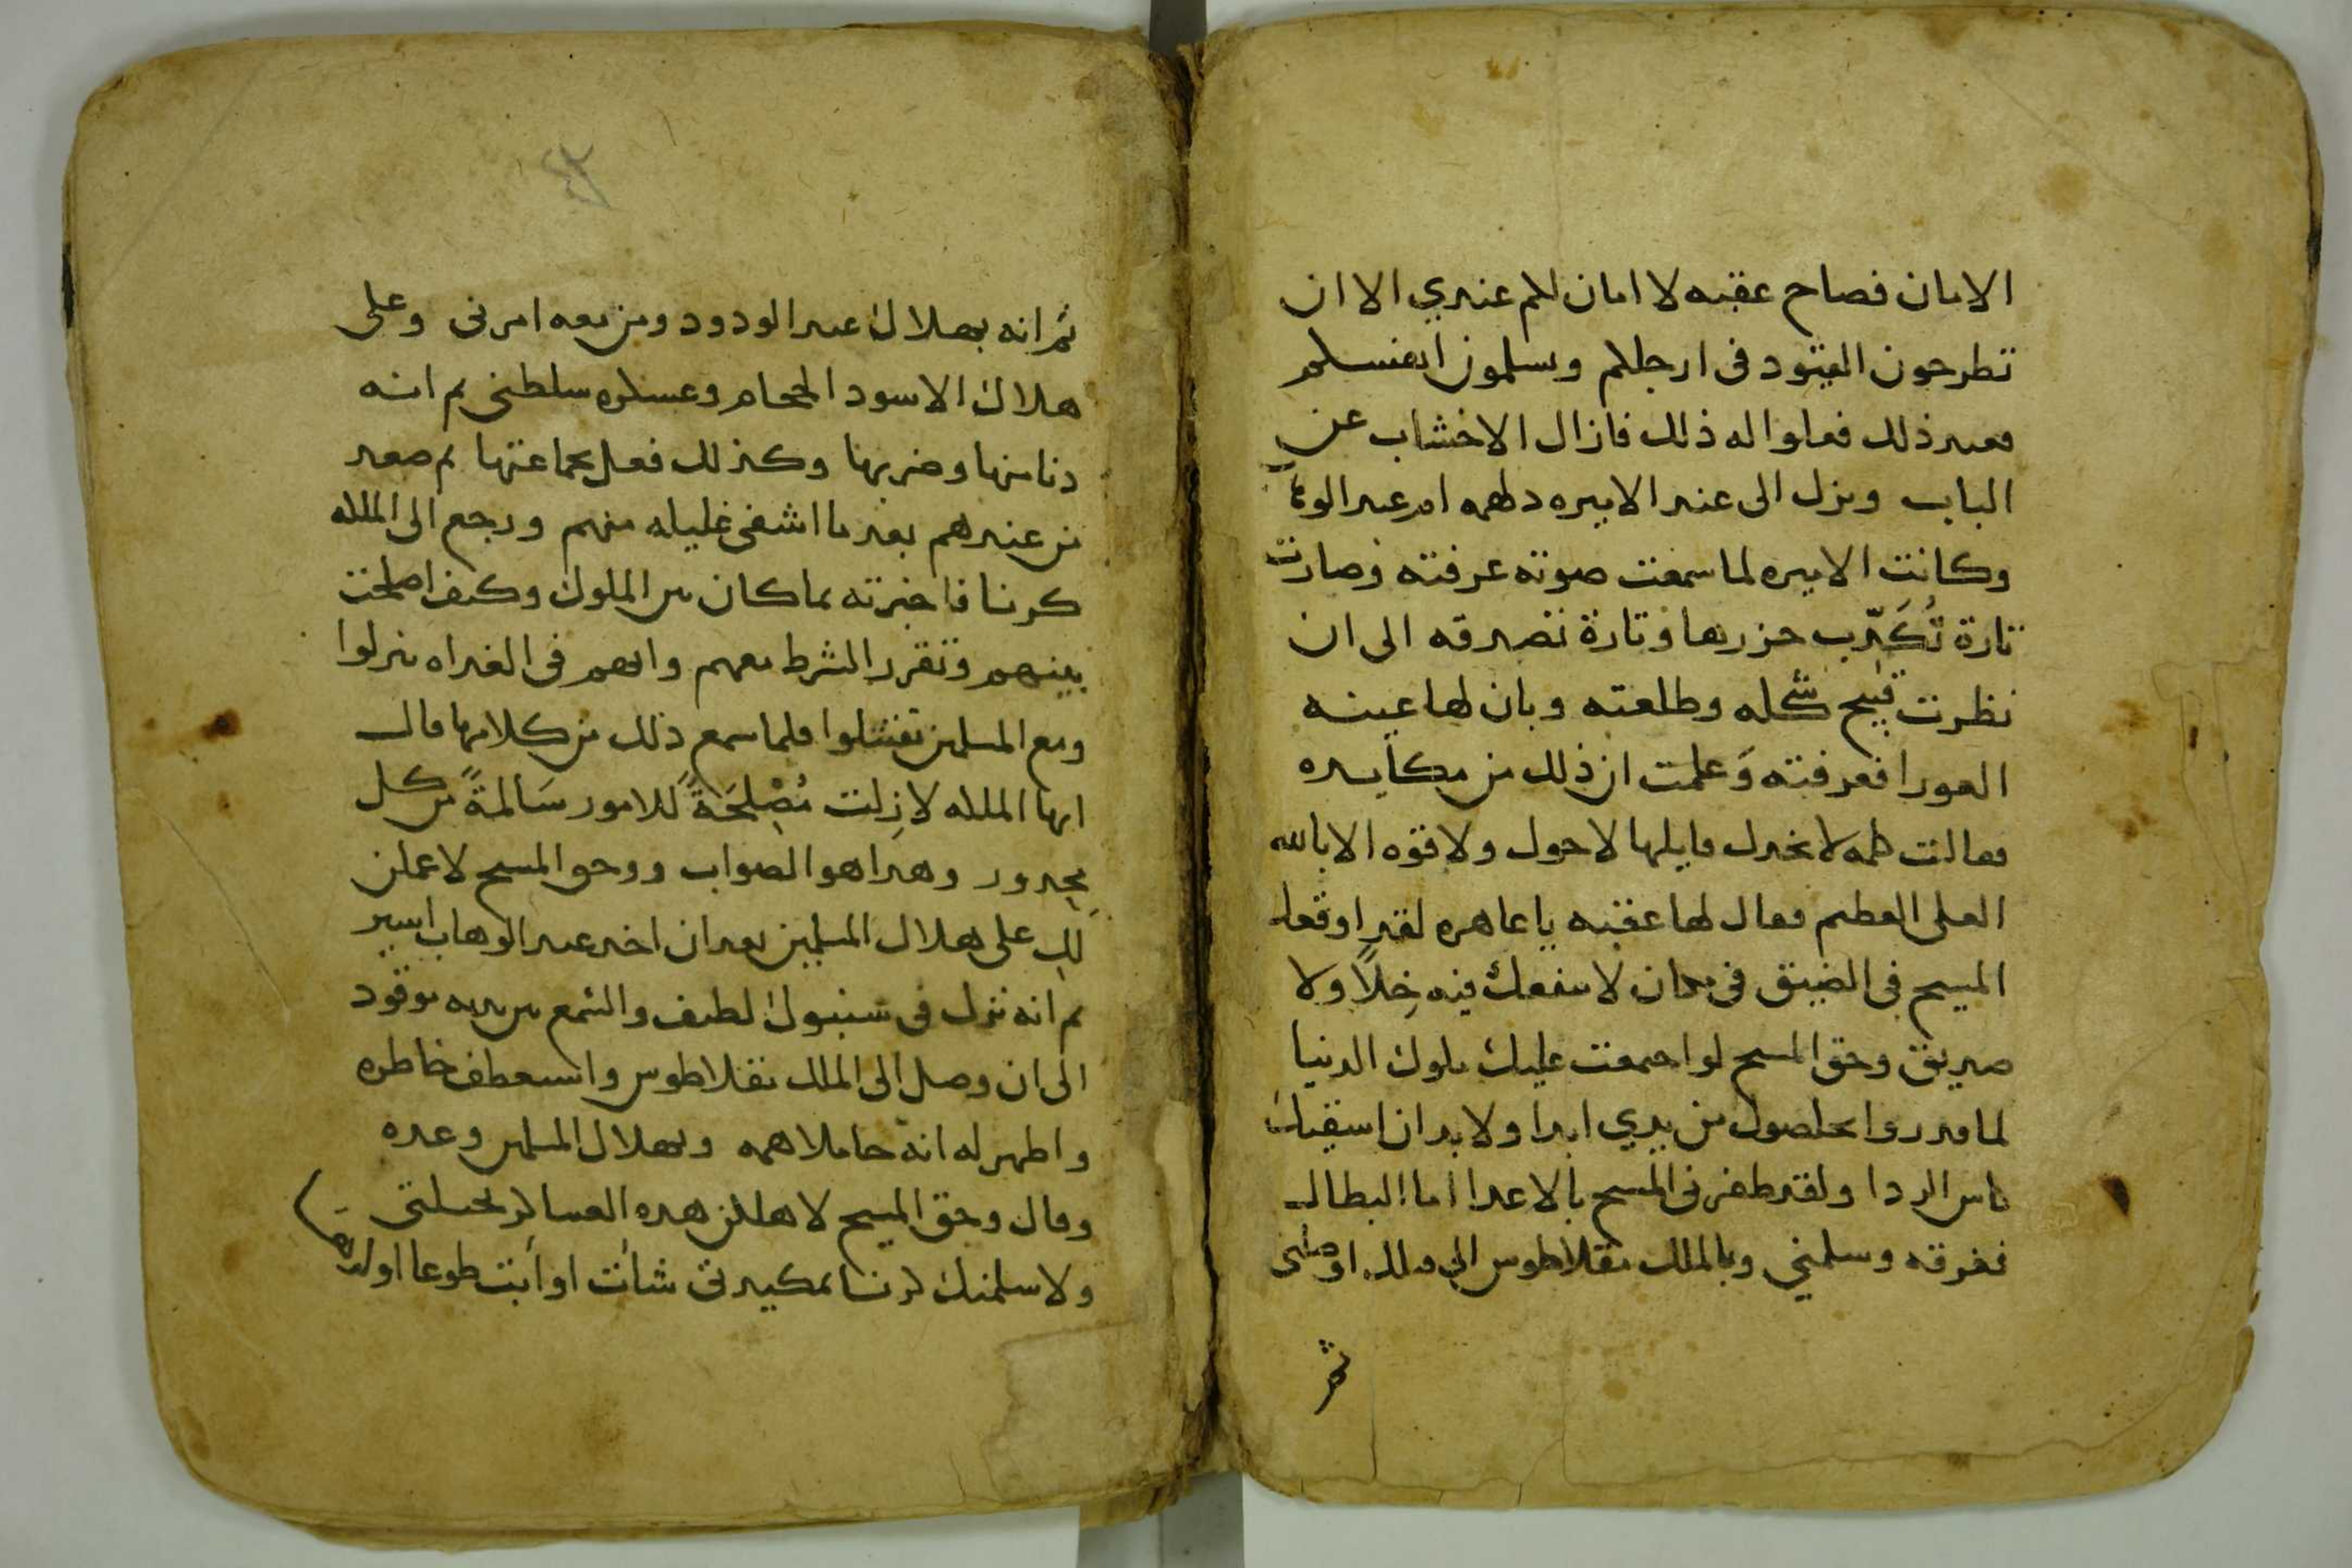 الامان فصاح عقبه لا امان لكم عندي الا ان
تطرحون القيود في ارجلكم وتسلمون انفسكم
فعند ذلك فعلوا له ذلك فازال الاخشاب عن
الباب ونزل الى عند الاميره دلهمه ام عبد الوها
وكانت الاميره لما سمعت صوته عرفته وصارت
تارة تُكَذّب حزرها وتارة تصدقه الى ان
نظرت قبيح شكله وطلعته وبان لها عينه
العورا فعرفته وَعلمت ان ذلك من مكايده
فقالت كلمه لا يخجل قايلها لا حول ولا قوه الا بالله
العلى العظيم فقال لها عقبه يا عاهره لقد اوقعك
المسيح في الضيق في مكان لا ينفعك فيه خِلاً ولا
صديق وحق المسيح لو اجتمعت عليك ملوك الدنيا
لما قدروا يخلصوك من يدي ابدا ولا بد ان اسقيك
كاس الردا ولقد ظفرني المسيح بالاعدا اما البطال
فغرقه وسلمني وبالملك تقلاطوس الى اوصلني
ثم
ثم انه بهلاك عبد الودود ومن معه امرني وعلى
هلاك الاسود الجحام وعسكره سلطني ثم انه
دنا منها وضربها وكذلك فعل بجماعتها ثم صعد
من عندهم بعد ما اشفى غليله منهم ورجع الى الملكه
كرنا فاخبرته بما كان من الملوك وكيف اصلحت
بينهم وتقرر الشرط معهم وانهم في الغداه ينزلوا
ومع المسلمين يقتتلوا فلما سمع ذلك من كلامها قال
ايها الملكه لا زِلت مُصْلِحَةً للامور سَالمةً من كل
مجدور وهدا هو الصواب ووحق المسيح لاعملن
لكِ على هلاك المسلمين بعد ان اخد عبد الوهاب اسير
ثم انه نزل في سنبوك لطيف والشمع بين يديه موقود
الى ان وصل الى الملك تقلاطوس واستعطف خاطره
واظهر له انه حاملا همه وبهلاك المسلمين وعده
وقال وحق المسيح لاهلكن هده العساكر بحيلتي
ولاسلمنك كرنا بمكيدتي شات او ابت طوعا او كرها